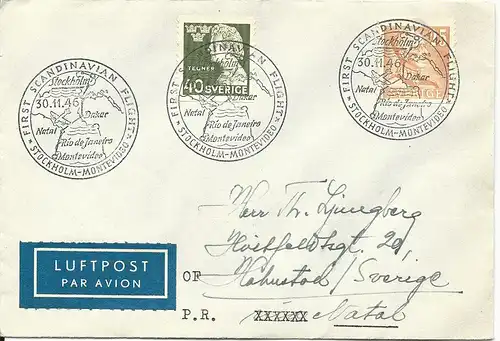 FIRST SCANDINAVIAN FLIGHT
Stockholm
30.11.46
Dakar
Natal
Rio de Janeiro
Montevideo
STOCKHOLM-MONTEVIDEO
FIRST SCANDINAVIAN FLIGHT
Stockholm
30.11.46
Dakar
Natal
Rio de Janeiro
Montevideo
STOCKHOLM-MONTEVIDEO
TEGNÉR
40 SVERIGE
FIRST SCANDINAVIAN FLIGHT
Stockholm
30.11.46
Dakar
Natal
Rio de Janeiro
Montevideo
STOCKHOLM-MONTEVIDEO
Herr Th. Ljungberg
20,
Halmstad / Sverige
LUFTPOST
PAR AVION
OF
P.R. XXXXXX Natal